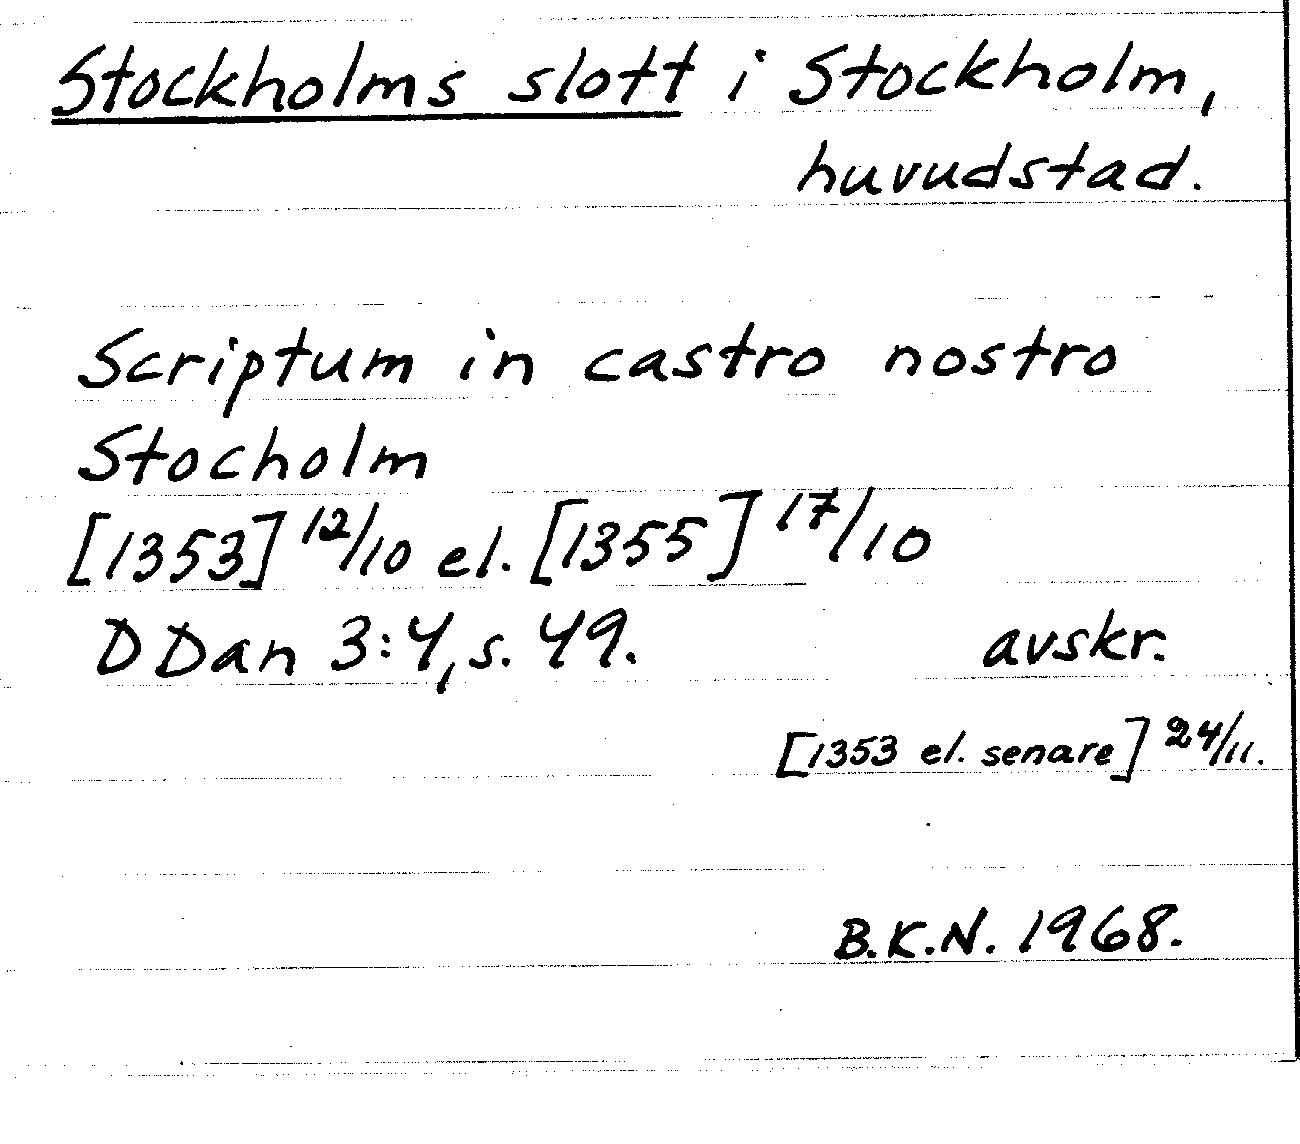 Stockholms slott i Stockholm,
huvudstad.
Scriptum in castro nostro
Stocholm
[1353] 12/10 el. [1355] 17/10
D Dan 3:4, s. 49. avskr.
[1353 el. senare] 24/11.
B.K.N. 1968.